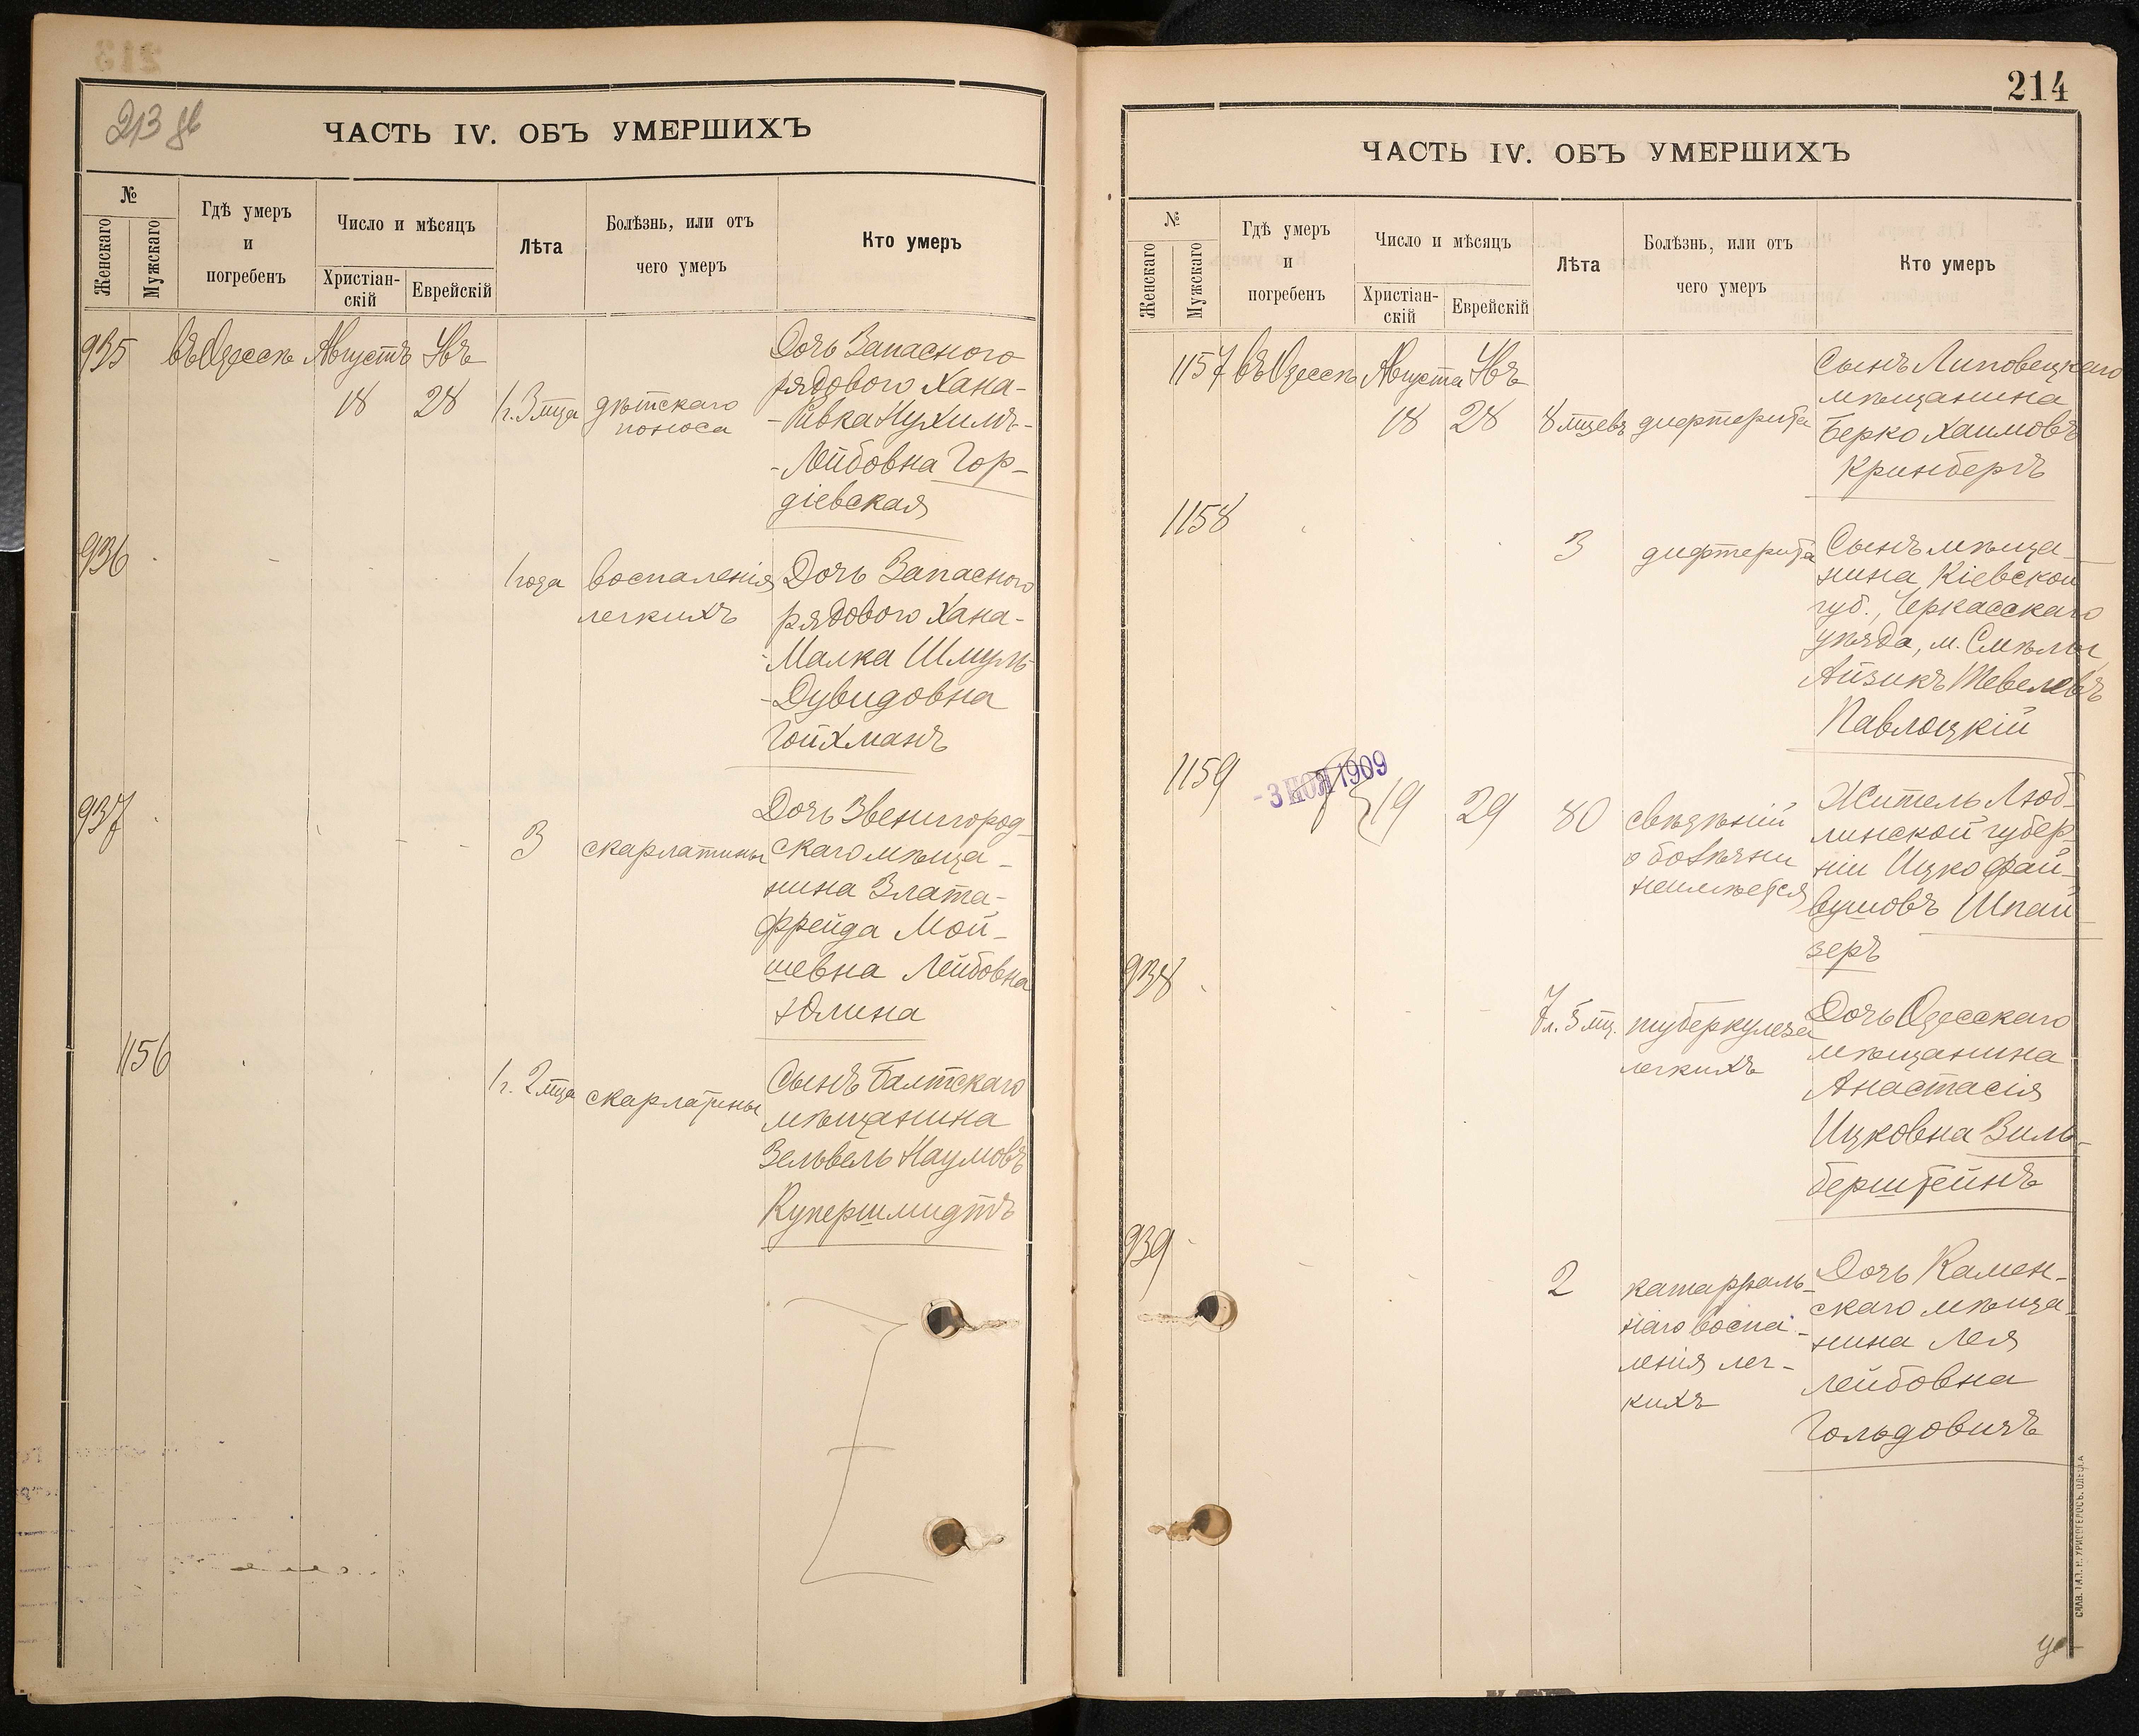 213 об
ЧАСТЬ IV. ОБЪ УМЕРШИХЪ
№
Женскаго
Мужскаго
Гдѣ умеръ
и
погребенъ
Число и мѣсяцъ
Христіан-
скій
Еврейскій
Лѣта
Болѣзнь, или отъ
чего умеръ
Кто умеръ
935 въ Одессѣ Августъ Явъ
18 28 1 г. 3 мца дѣтскаго
поноса
Дочь Запасного
рядового Хана-
-Ривка Нухимъ-
-Лейбовна Гор-
діевская
936
1 года воспаленія
легкихъ
Дочь Запасного
рядового Хана-
-Малка Шмуль-
-Дувидовна
Гойхманъ
937
3 скарлатины
Дочь Звенигород-
скаго мѣща-
нина Злата-
Фрейда Мой-
шевна Лейбовна
Юлина
1156
1 г. 2 мца скарлатины
Сынъ Балтскаго
мѣщанина
Зельвель Наумовъ
Купершмидтъ
214
ЧАСТЬ IV. ОБЪ УМЕРШИХЪ
№
Женскаго
Мужскаго
Гдѣ умеръ
и
погребенъ
Число и мѣсяцъ
Христіан-
скій
Еврейскій
Лѣта
Болѣзнь, или отъ
чего умеръ
Кто умеръ
1157 въ Одессѣ Августа Явъ
18 28 8 мцевъ дифтерита
Сынъ Липовецкаго
мѣщанина
Берко Хаимовъ
Кринбергъ
1158
3 дифтерита
Сынъ мѣща-
нина Кіевской
губ., Черкасскаго
уѣзда, м. Смѣлы
Айзикъ Тевелевъ
Павлоцкій
1159
- 3 НОЯ 1909
19 29 80 свѣдѣній
о болѣзни
неимѣется
Житель Люб-
линской губер-
ніи Ицко Фай-
вушовъ Шпай-
зеръ
938
7 л. 5 мц. туберкулеза
легкихъ
Дочь Одесскаго
мѣщанина
Анастасія
Ицковна Зиль-
берштейнъ
939
2 катарраль-
наго воспа-
ленія лег-
кихъ
Дочь Камен-
скаго мѣща-
нина Лея
Лейбовна
Гольдовичъ